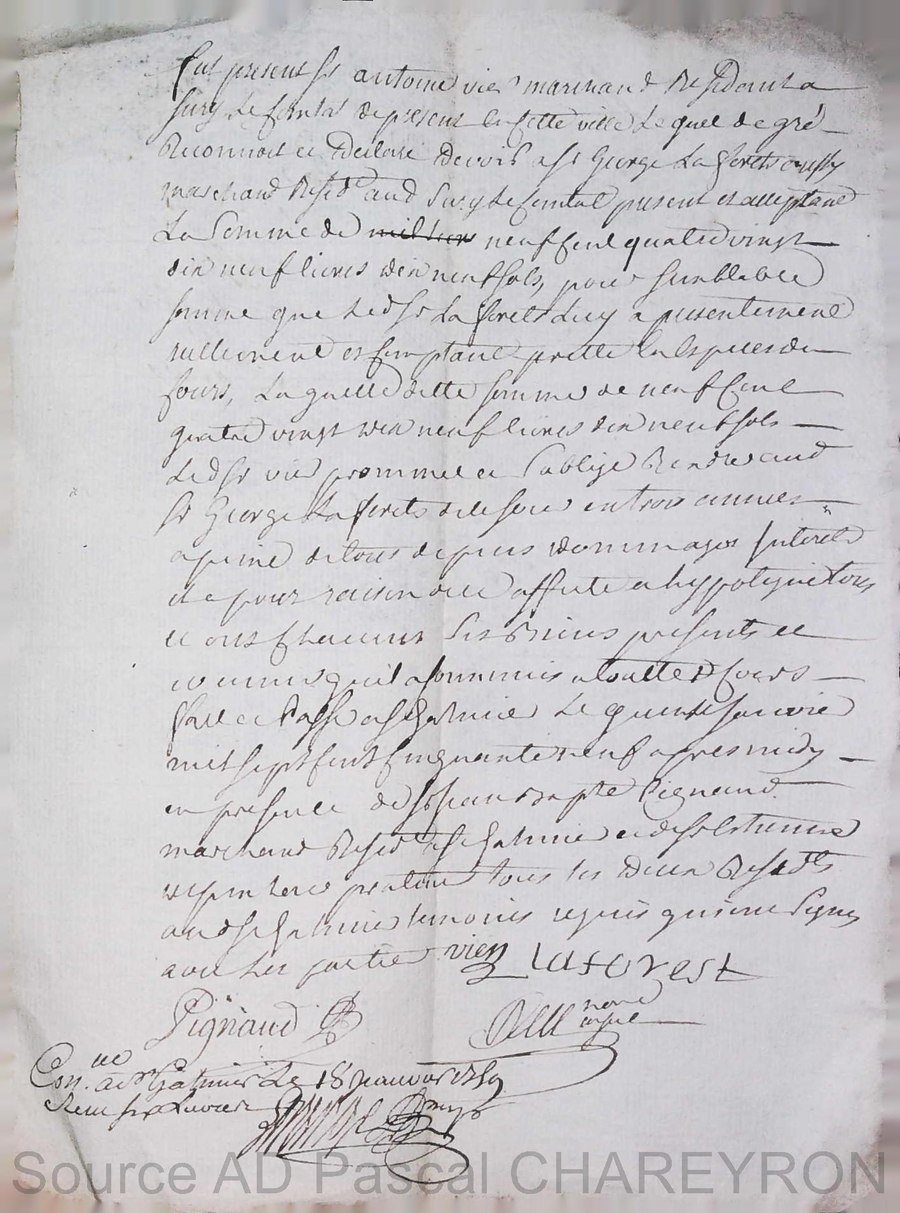 fut present Sr antoine vier marchand Residant a
Sury le Comtal de present en cette ville Lequel de gré
Reconnoit et Declare Devoir a Sr George La forets aussy
marchand Resid^t aud Sury le Comtal present et acceptant
La Somme de neuf Cent quatre vingt
dix neuf livres dix neuf sols, pour semblable
somme que Led Sr La forets Luy a presentement
reellement et Comptant prette en especes du
Cours, Laquelle ditte somme de neuf Cent
quatre vingt dix neuf livres dix neuf sols
Led Sr vier promet et S'oblige Rendre aud
Sr George La forets en trois années
a peine de tous depens dommages Interets
et pour raison de ce affecte et hypoteque tous
et Chacuns Ses Biens presents et
qu'il a soummis a toutte Cours
fait et Passé a St Galmier Le quinze janvier
mil sept Cent Cinquante neuf apres midy
en presence de Sr Jean Bapte Pignaud
marchand Resid^t a St Galmier et de Sr Estienne
praticien tous les Deux Resid^ts
aud St Galmier temoins requis qui ont Signé
avec Les partie vier Laforest
Pignaud
no^re
Con.^lle a St Galmier Le 18 janvier 1759
Reçu
Source AD Pascal CHAREYRON